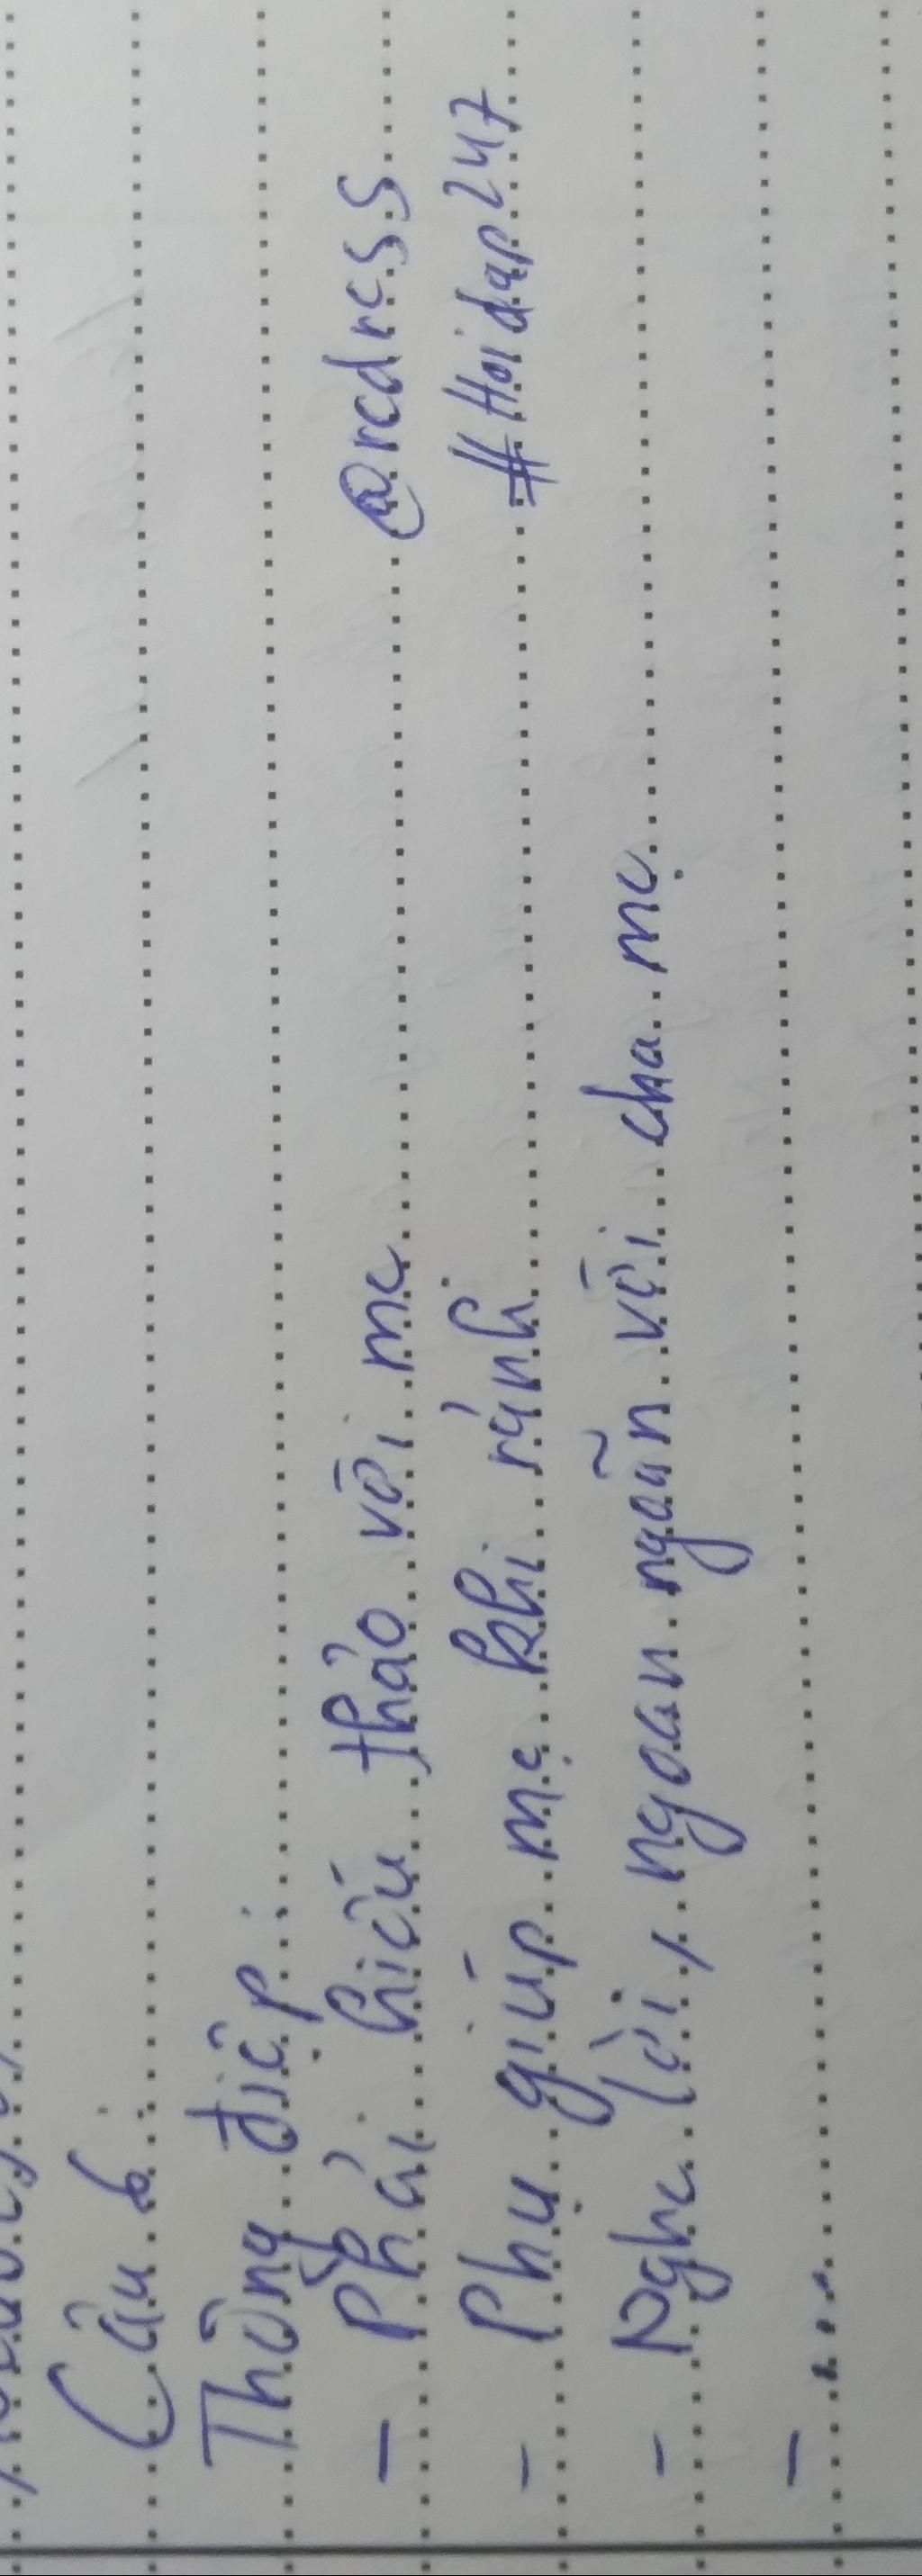 Câu 6:
Thông điệp:
- Phải hiếu thảo với mẹ @rcdrcss
- Phụ giúp mẹ khi rảnh. #Hoidap247
- Nghe lời, ngoan ngoãn với cha mẹ.
- ....